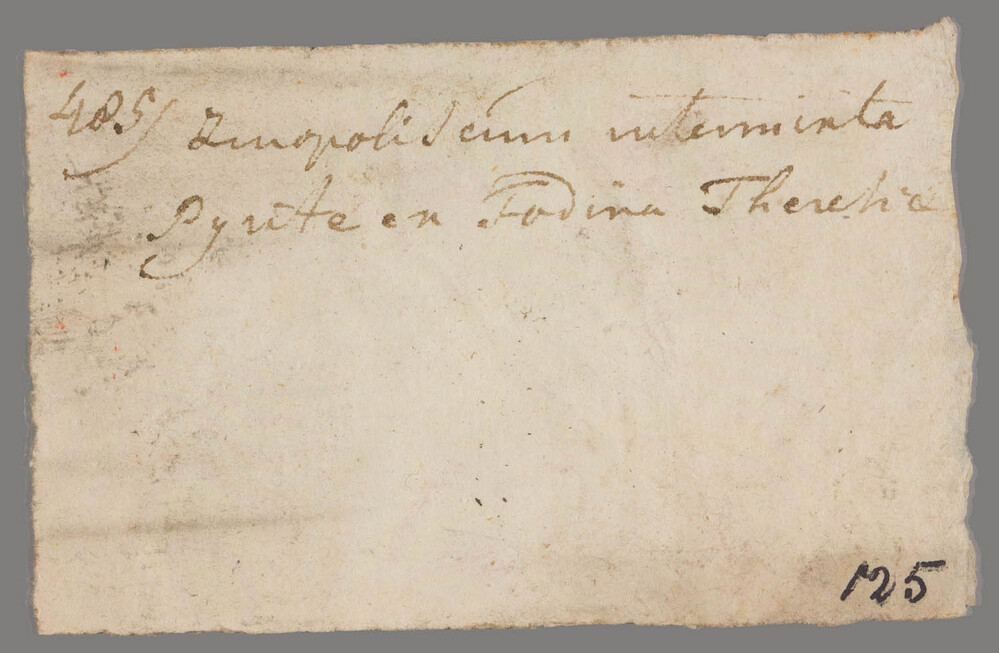 485) Zinopolis cum intermixta
Pyrite ex Fodina Theresiæ
125